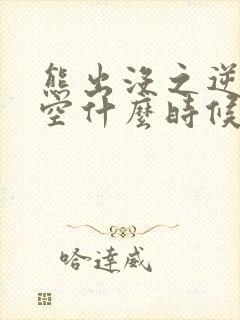 熊出沒之逆
空什麼時候
哈達威